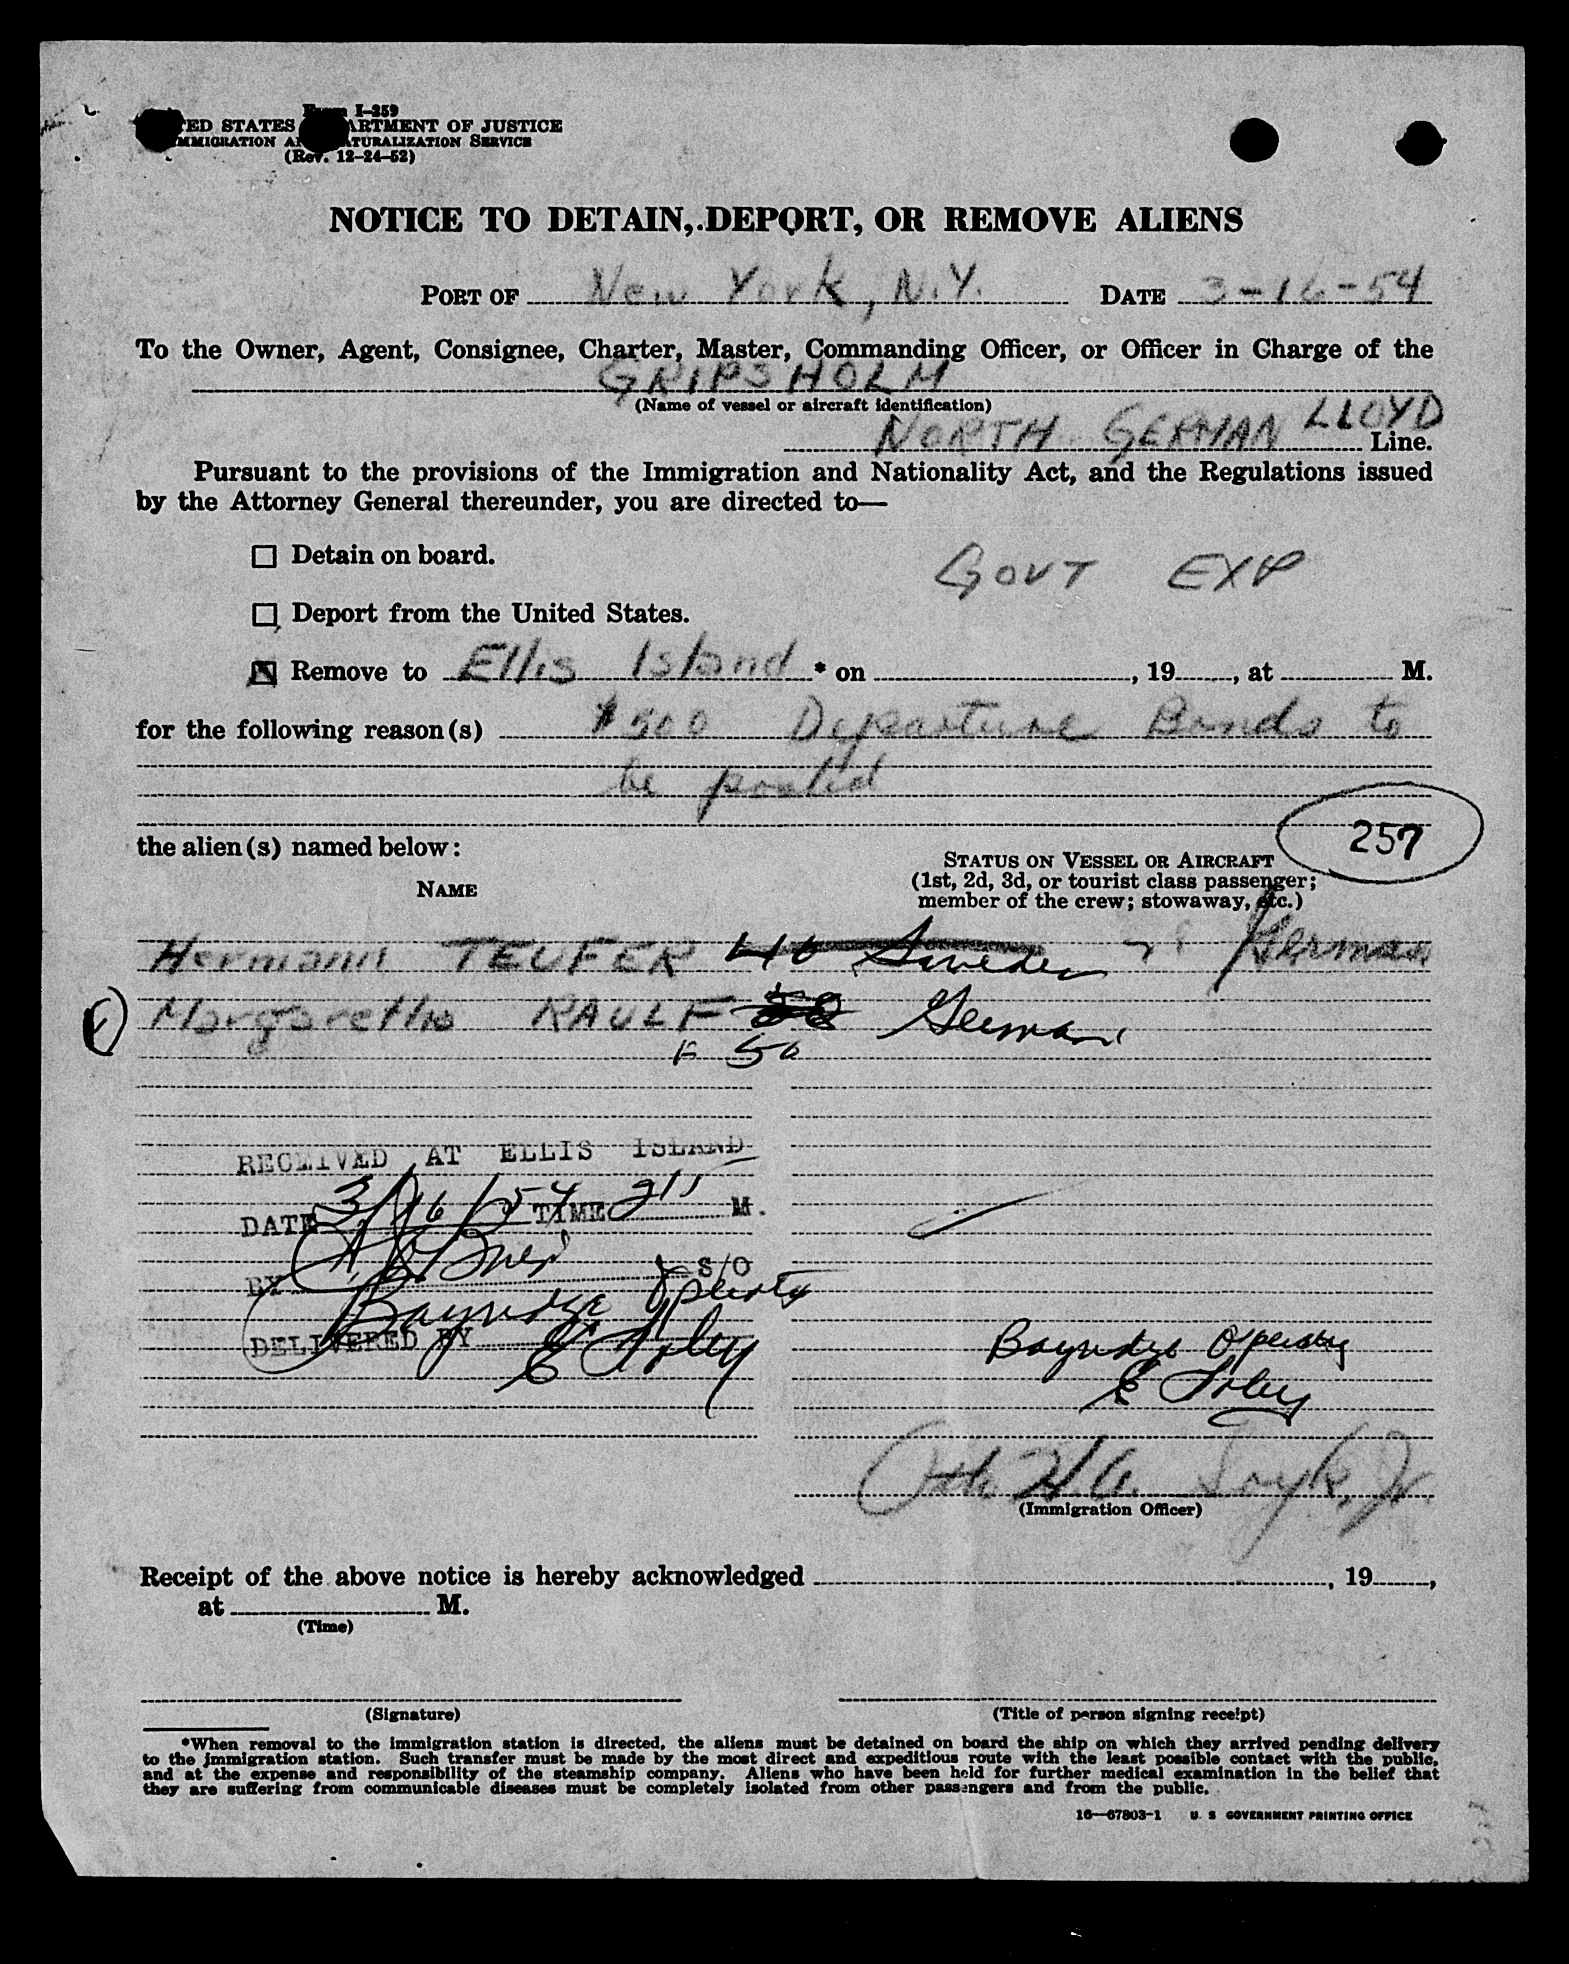 Form I-259
UNITED STATES DEPARTMENT OF JUSTICE
IMMIGRATION AND NATURALIZATION SERVICE
(Rev. 12-24-52)
NOTICE TO DETAIN, DEPORT, OR REMOVE ALIENS
PORT OF New York, N.Y. DATE 3-16-54
To the Owner, Agent, Consignee, Charter, Master, Commanding Officer, or Officer in Charge of the
GRIPSHOLM
(Name of vessel or aircraft identification)
NORTH GERMAN LLOYD Line.
Pursuant to the provisions of the Immigration and Nationality Act, and the Regulations issued
by the Attorney General thereunder, you are directed to—
☐ Detain on board.
GOVT EXP
☐ Deport from the United States.
☒ Remove to Ellis Island * on , 19 , at M.
for the following reason(s) $500 Departure Bonds to
be posted
257
the alien(s) named below:
NAME
STATUS ON VESSEL OR AIRCRAFT
(1st, 2d, 3d, or tourist class passenger;
member of the crew; stowaway, etc.)
Hermann TEUFER 40 Sweden German
Margarethe RAULF 38 German
F 50
RECEIVED AT ELLIS ISLAND
DATE 3/16/54 TIME 211 M.
BY S/O
Bayridge Operating
DELIVERED BY E Foley
Bayridge Operating
E Foley
(Immigration Officer)
Receipt of the above notice is hereby acknowledged , 19 ,
at M.
(Time)
(Signature)
(Title of person signing receipt)
*When removal to the immigration station is directed, the aliens must be detained on board the ship on which they arrived pending delivery
to the immigration station. Such transfer must be made by the most direct and expeditious route with the least possible contact with the public,
and at the expense and responsibility of the steamship company. Aliens who have been held for further medical examination in the belief that
they are suffering from communicable diseases must be completely isolated from other passengers and from the public.
16—67803-1 U. S. GOVERNMENT PRINTING OFFICE